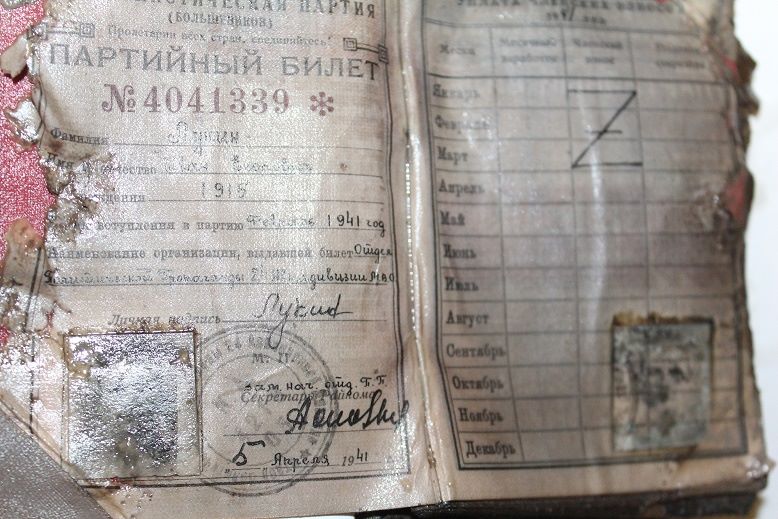 ИСТИЧЕСКАЯ ПАРТИЯ
(БОЛЬШЕВИКОВ)
Пролетарии всех стран, соединяйтесь!
ПАРТИЙНЫЙ БИЛЕТ
№4041339 *
Фамилия Лукин
Имя и отчество Иван
рождения 1915
вступления в партию Февраль 1941 год
Наименование организации, выдавшей билет Отдел
Политической Пропаганды дивизии МВО
Личная подпись Лукин
М. П.
зам. нач. отд. П.П.
Секретарь Райкома
5 Апреля 1941
УПЛАТА ЧЛЕНСКИХ
Месяц Месячный заработок Членский взнос
Январь Z
Февраль
Март
Апрель
Май
Июнь
Июль
Август
Сентябрь
Октябрь
Ноябрь
Декабрь